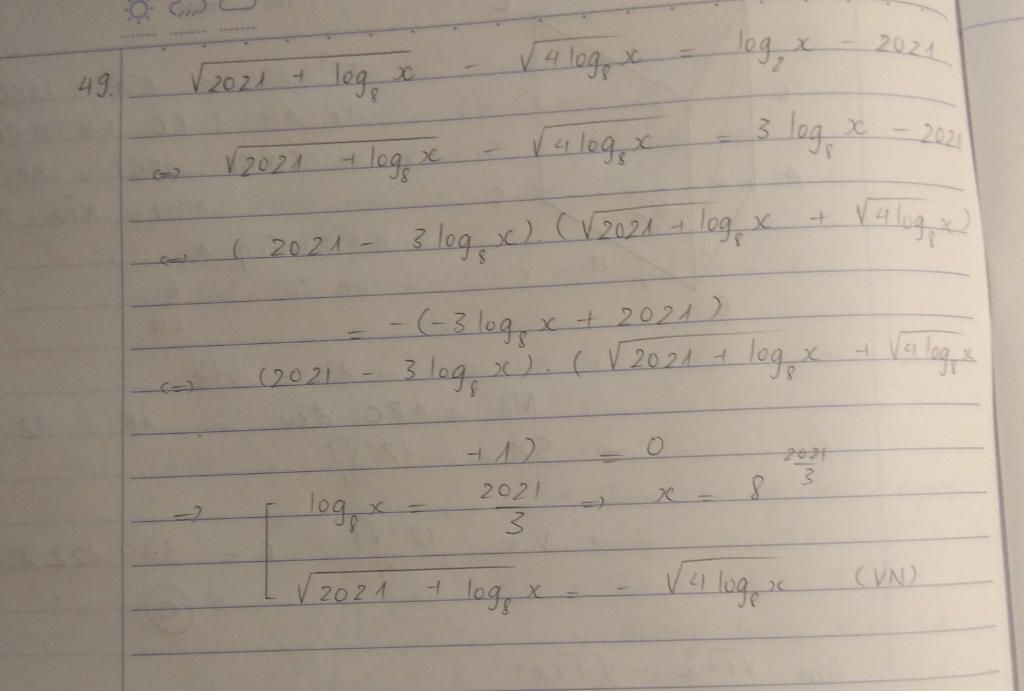 49. √(2021 + log₈ x) - √(4 log₈ x) = log₂ x - 2021
<=> √(2021 + log₈ x) - √(4 log₈ x) = 3 log₈ x - 2021
<=> (2021 - 3 log₈ x). (√(2021 + log₈ x) + √(4 log₈ x))
= -(-3 log₈ x + 2021)
<=> (2021 - 3 log₈ x). (√(2021 + log₈ x) + √(4 log₈ x)
+ 1) = 0
=> [ log₈ x = 2021/3 => x = 8^(2021/3)
√(2021 + log₈ x) = - √(4 log₈ x) (VN)